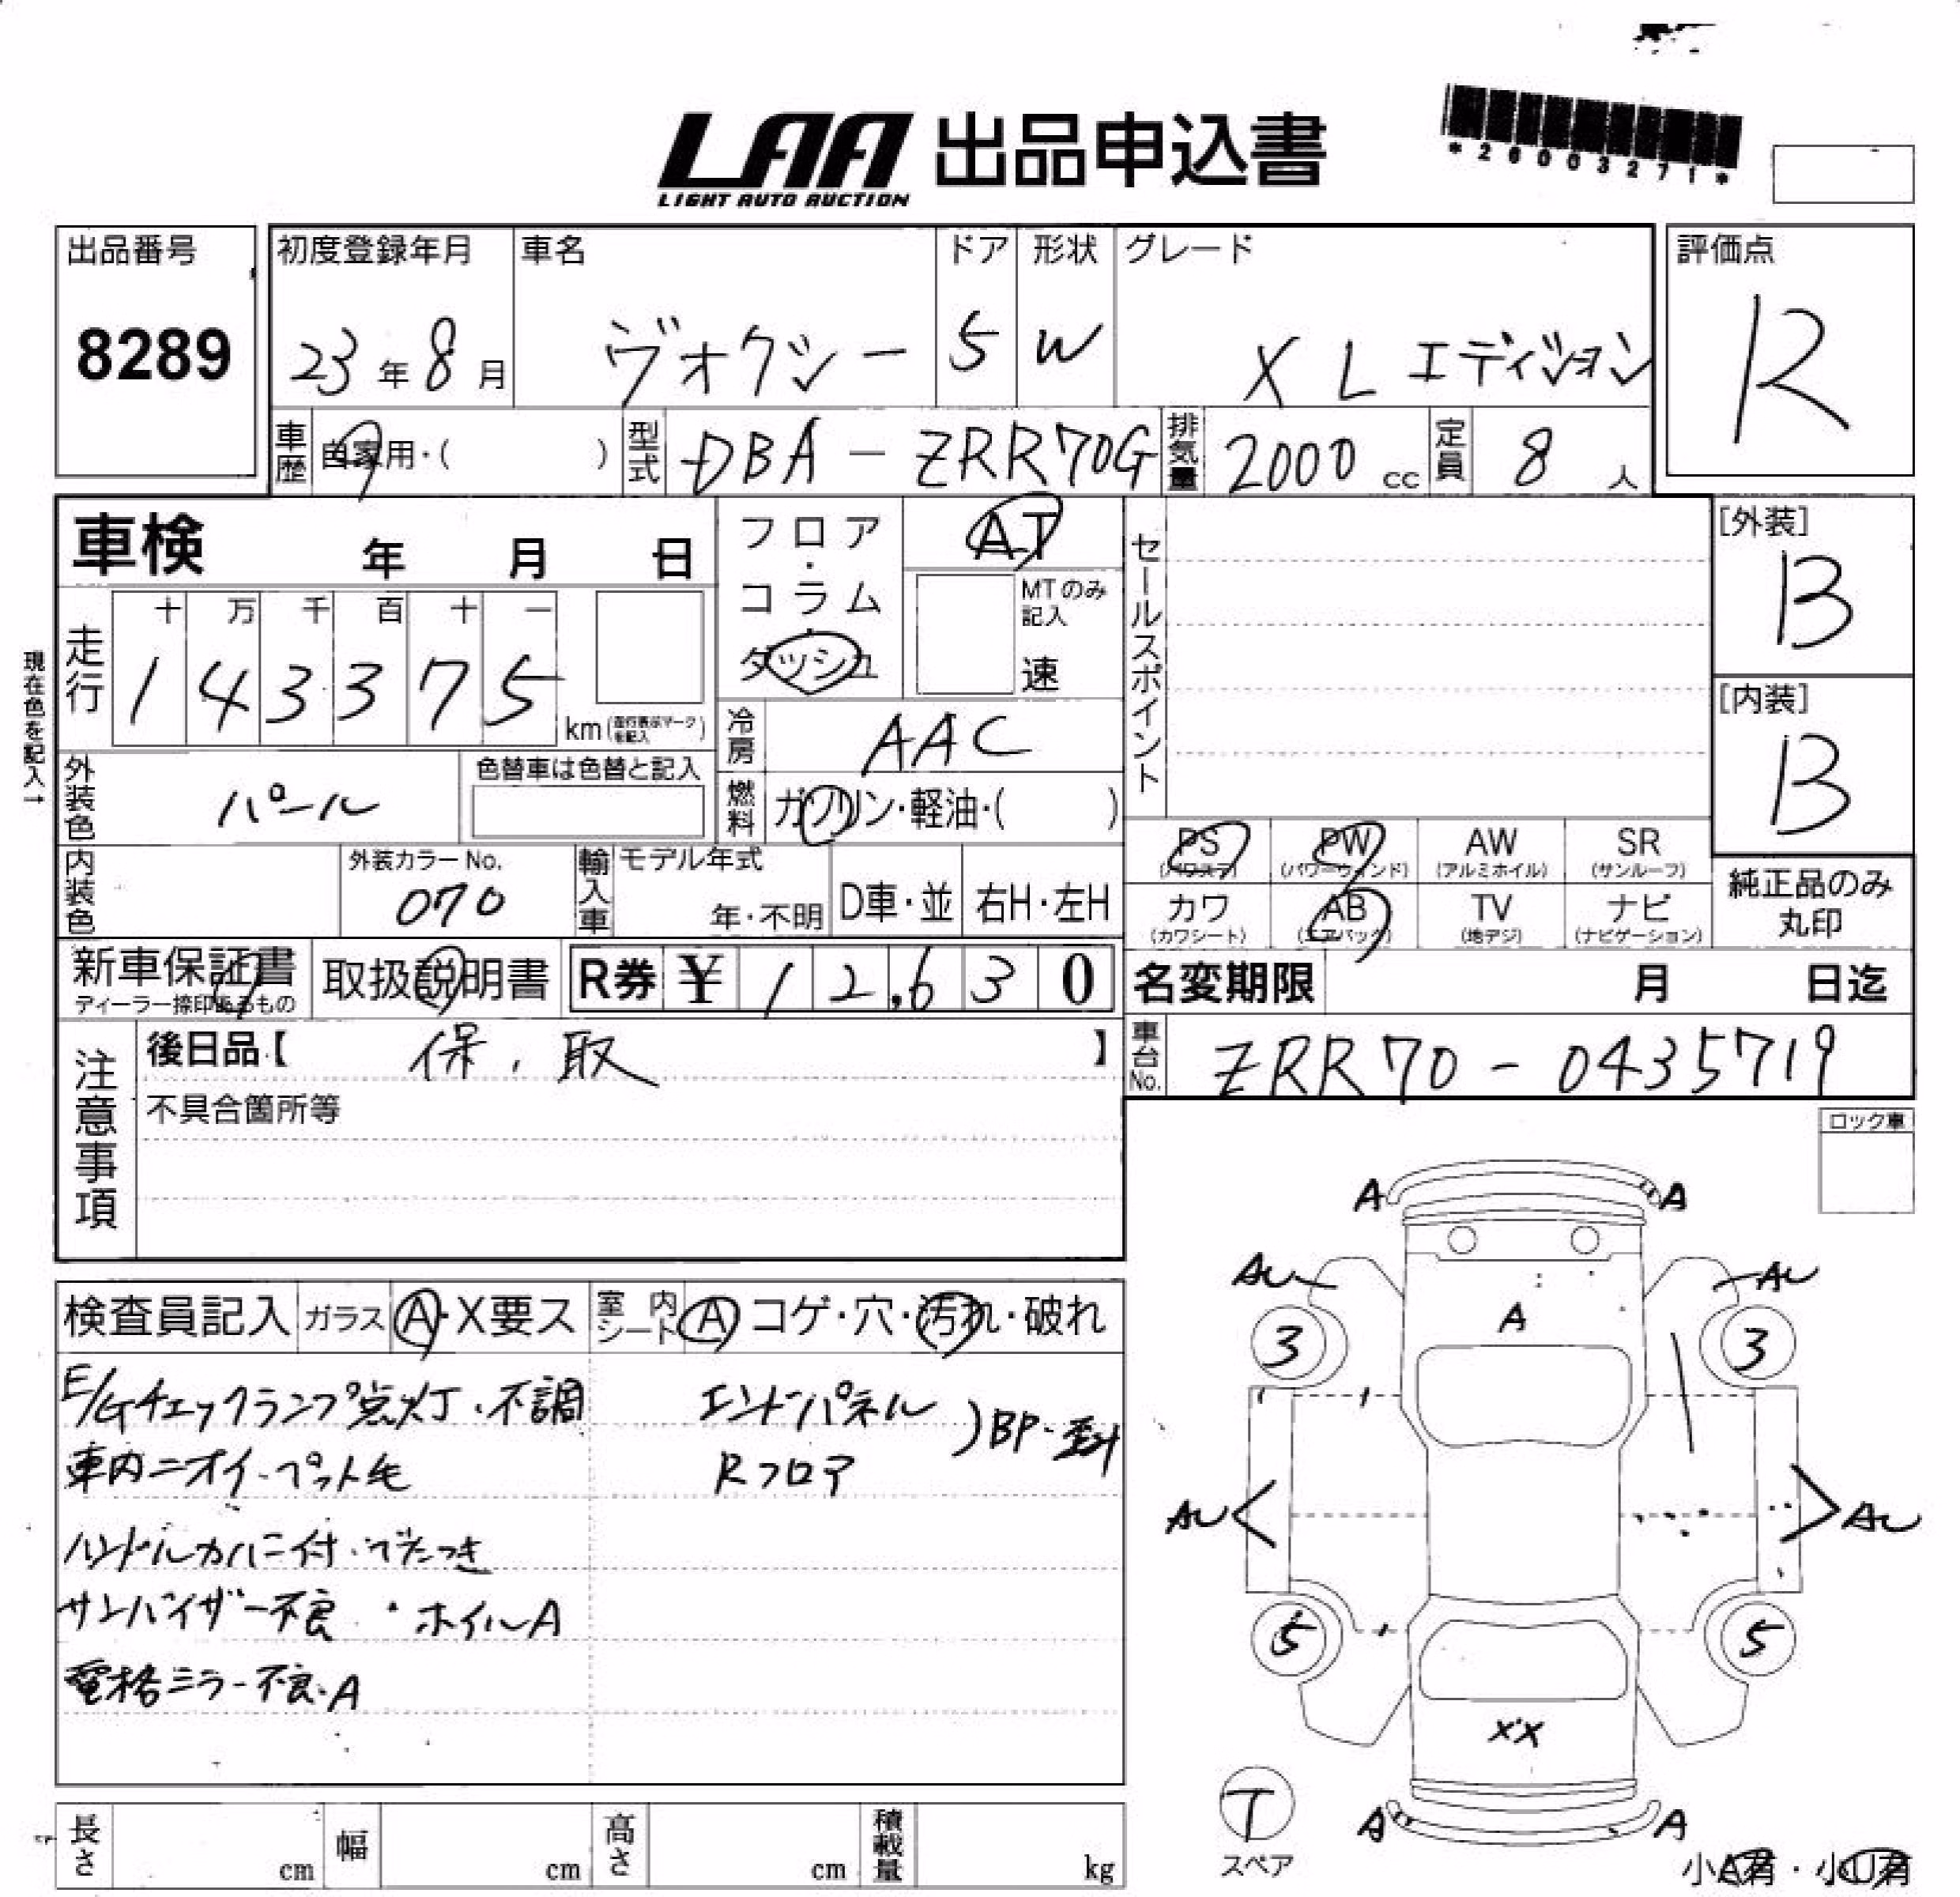 LAA 出品申込書
LIGHT AUTO AUCTION
*26003271*
出品番号
8289
初度登録年月
23年8月
車名
ヴォクシー
ドア
5
形状
W
グレード
X L エディション
評価点
R
車歴 自家用・( )
型式 DBA-ZRR70G
排気量 2000 cc
定員 8 人
車検 年 月 日
フロア・コラム・ダッシュ
AT
MTのみ記入
速
セールスポイント
[外装]
B
[内装]
B
現在色を記入→
走行
十 万 千 百 十 一
1 4 3 3 7 5 km (走行表示マークを記入)
冷房 AAC
外装色 パール
色替車は色替と記入
燃料 ガソリン・軽油・( )
内装色
外装カラーNo.
070
輸入車
モデル年式
年・不明
D車・並
右H・左H
PS (パワステ)
PW (パワーウィンド)
AW (アルミホイル)
SR (サンルーフ)
カワ (カワシート)
AB (エアバック)
TV (地デジ)
ナビ (ナビゲーション)
純正品のみ
丸印
新車保証書
ディーラー捺印あるもの
取扱説明書
R券 ¥ 12,630
名変期限 月 日迄
注意事項
後日品【 保、取 】
車台No. ZRR70-0435719
不具合箇所等
ロック車
検査員記入
ガラス A・X要ス
室内シート A コゲ・穴・汚れ・破れ
E/Gチェックランプ点灯・不調
車内ニオイ・ペット毛
ハンドルカバー付・べたつき
サンバイザー不良・ホイルA
電格ミラー不良・A
エンドパネル
Rフロア
)BP・
A A
AU AU
A
3 3
AU AU
5 5
XX
T
スペア
A A
小A有・小U有
長さ cm
幅 cm
高さ cm
積載量 kg